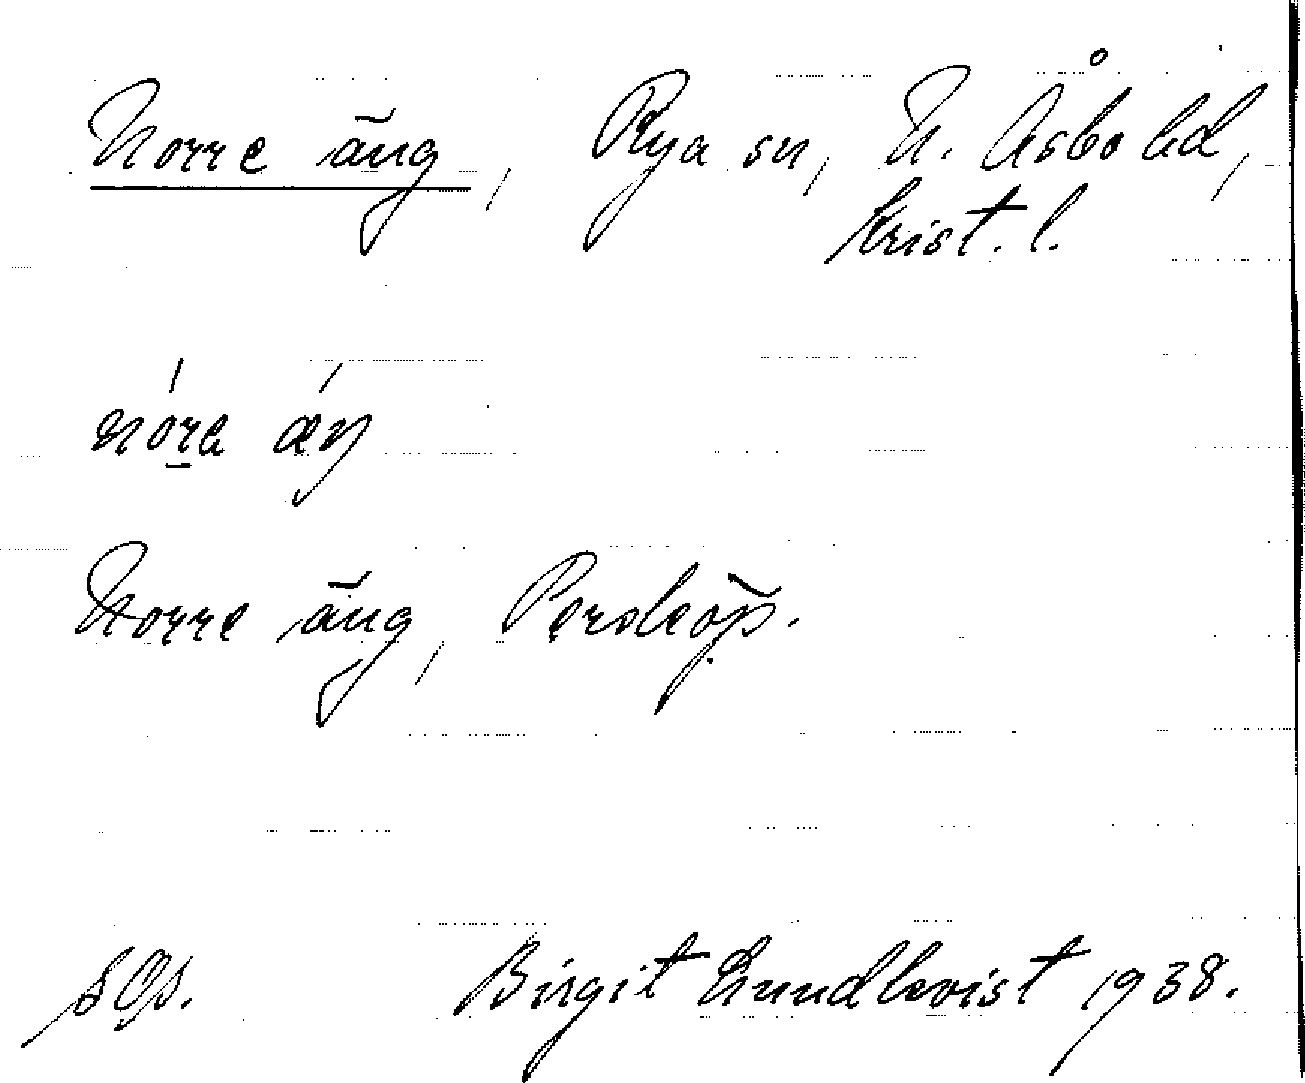 Norre äng, Rya sn, N. Åsbo hd,
Krist. l.
nóra áŋ
Norre äng, Perstorp.
Birgit Lundkvist 1938.